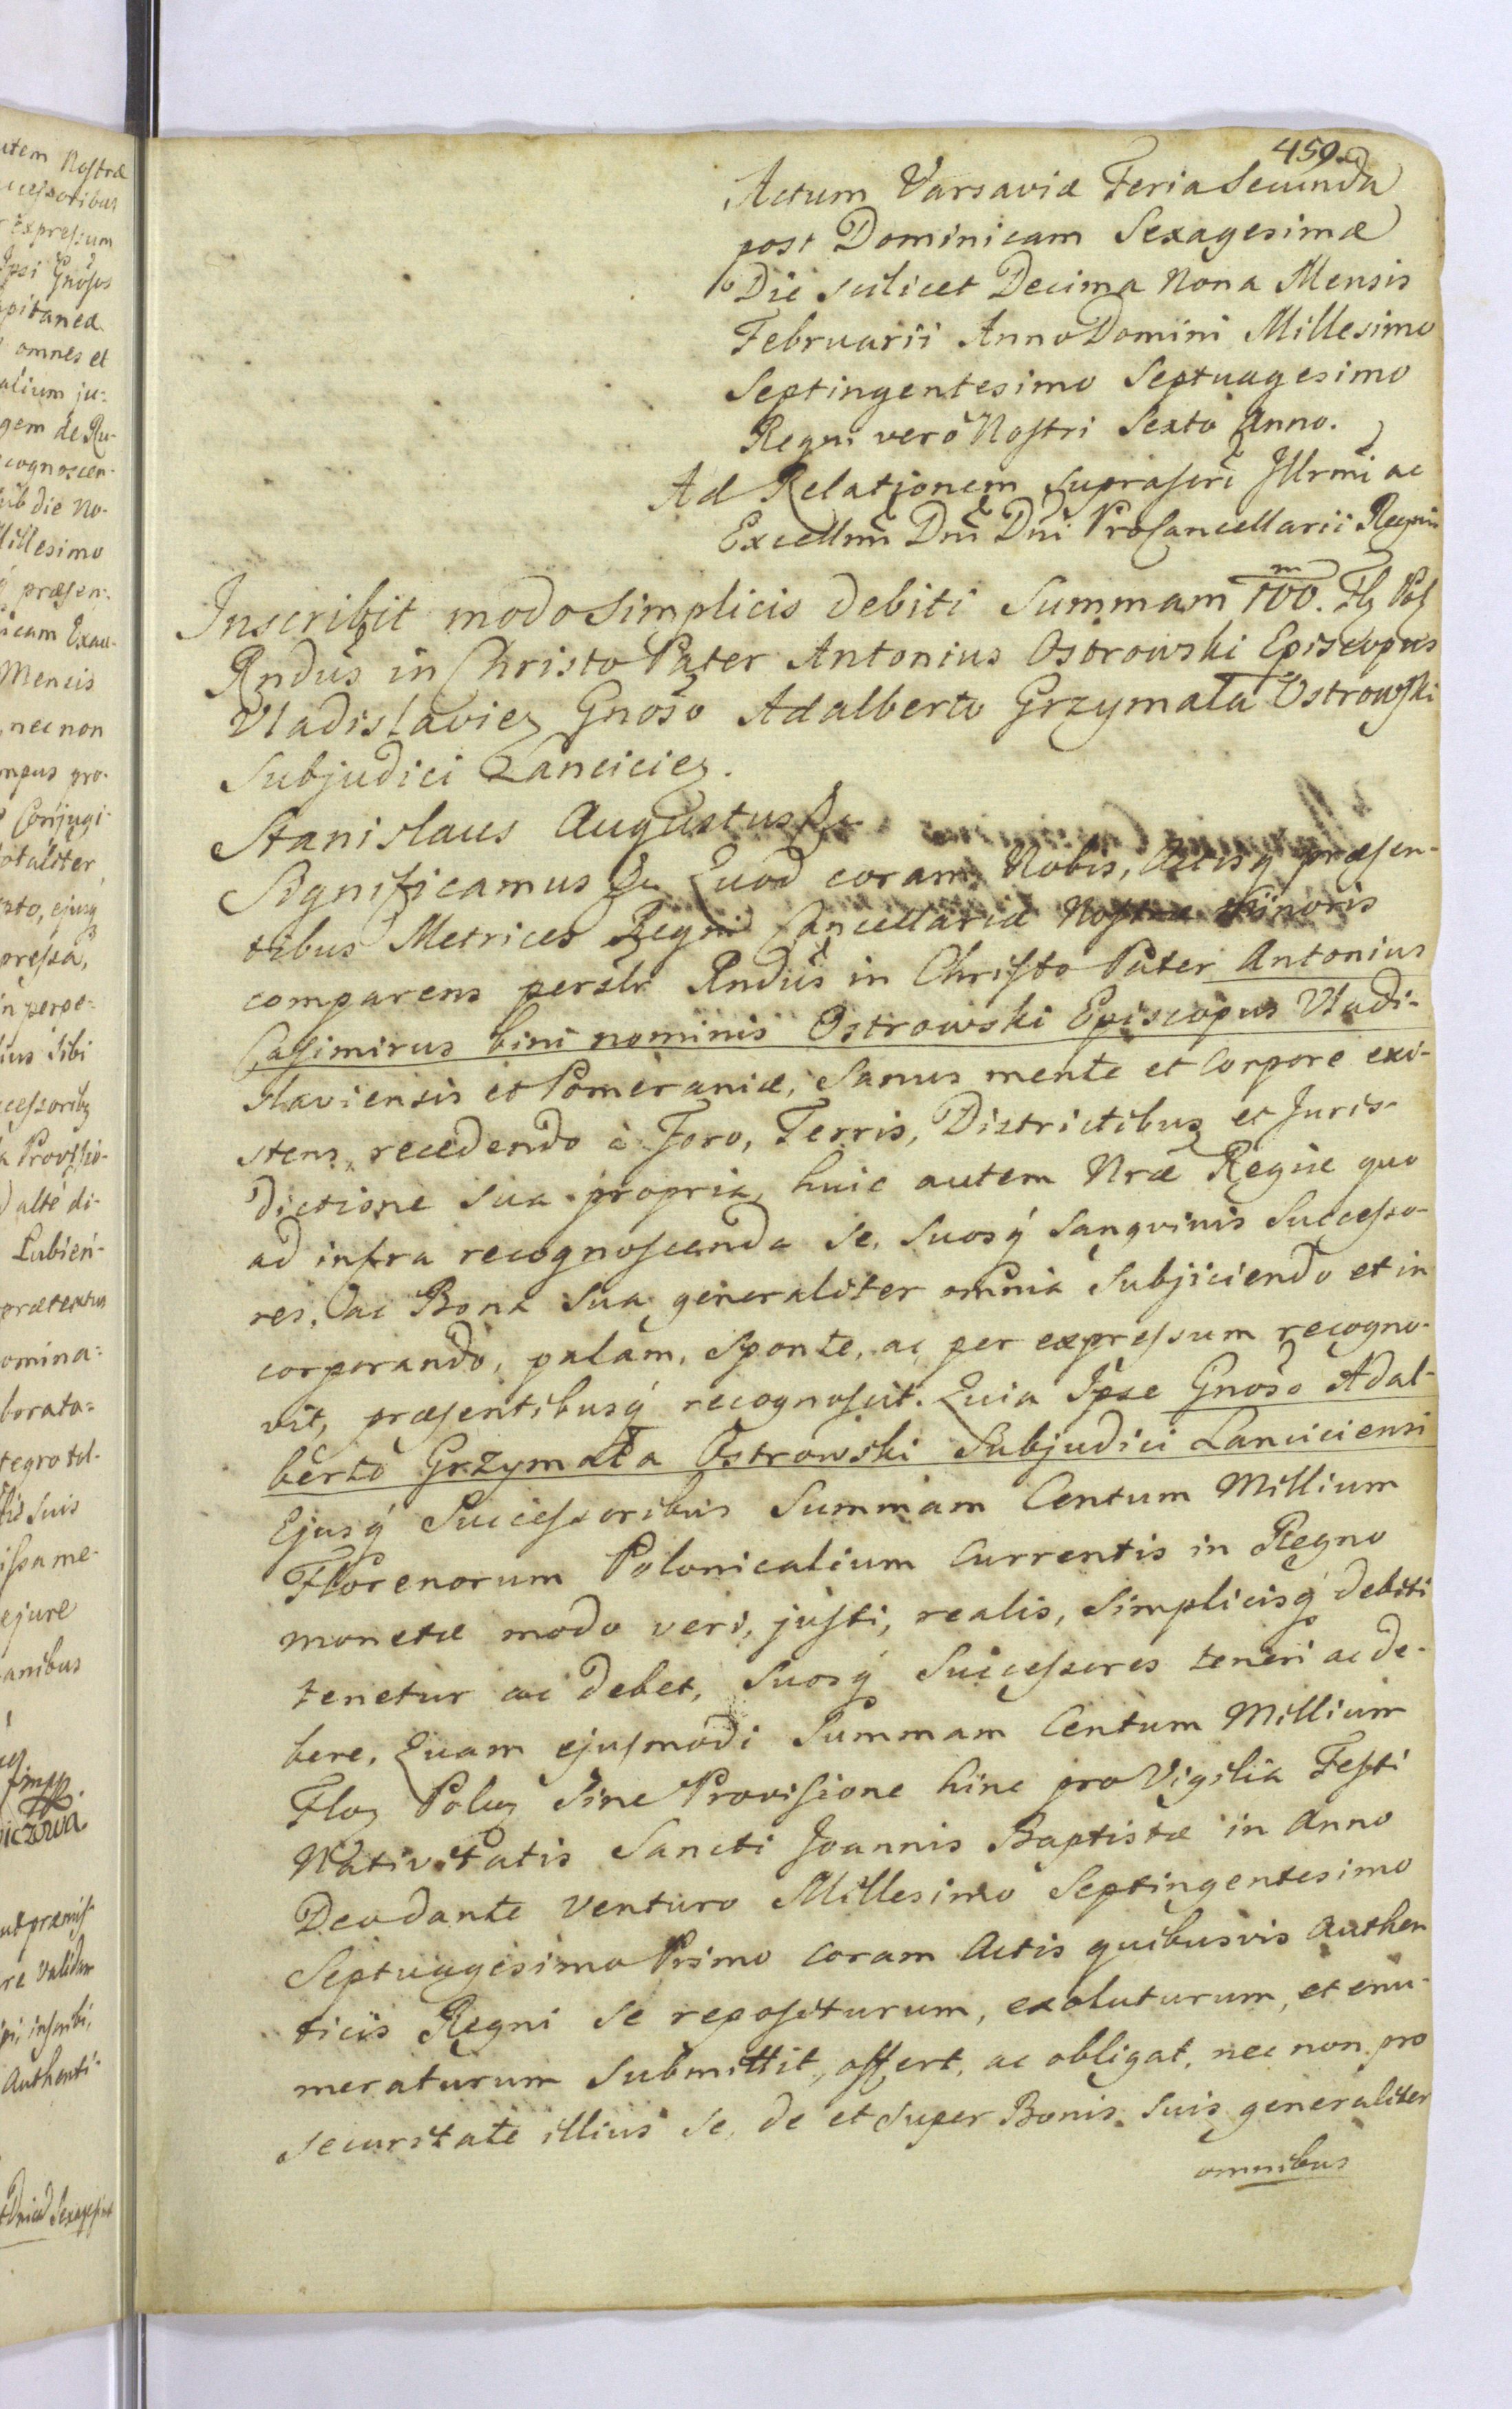 459.
Actum Varsaviæ Feria Secunda
post Dominicam Sexagesimæ
Die scilicet Decima Nona Mensis
Februarii Anno Domini Millesimo
Septingentesimo Septuagesimo
Regni verò Nostri Sexto Anno.
Ad Relationem suprascri Illrmi ac
Excellmi Dni Dni ProCancellarii Regni
Inscribit modo Simplicis debiti Summam 100.m Flz Polz
Rndus in Christo Pater Antonius Ostrowski Episcopus
Vladislaviez Gnoso Adalberto Grzymała Ostrowski
Subjudici Lanciciez.
Stanislaus Augustus &c
Significamus &c Quod coram Nobis, Actisq́ præsen-
tibus Metrices Regni Cancellariæ Nostræ Minoris
comparens persltr Rndus in Christo Pater Antonius
Casimirus bini nominis Ostrowski Episcopus Vladi-
slaviensis et Pomeraniæ, Sanus mente et Corpore exi-
stens, recedendo à Foro, Terris, Districtibus et Juris-
dictione sua propria, huic autem Nræ Regiæ quo
ad infra recognoscenda se, suosq́ sanqvinis Successo-
res, ac Bona sua generaliter omnia Subjiciendo et in
corporando, palam, sponte, ac per expressum recogno-
vit, præsentibusq́ recognoscit. Quia Ipse Gnoso Adal-
berto Grzymała Ostrowski Subjudici Lanciciensi
Ejusq́ Successoribus Summam Centum Millium
Florenorum Polonicalium Currentis in Regno
monetæ modo veri, justi, realis, Simplicisq́ debiti
tenetur ac debet, Suosq́ Successores teneri ac de-
bere. Quam ejusmodi Summam Centum Millium
Floz Polcz Sine Provisione hinc pro Vigilia Festi
Nativitatis Sancti Joannis Baptistæ in Anno
Deo dante venturo Millesimo Septingentesimo
Septuagesimo Primo coram Actis quibusvis authen
ticis Regni se repositurum, exoluturum, et enu-
meraturum Submittit, offert, ac obligat, nec non pro
securitate illius se, de et super Bonis suis generaliter
omnibus